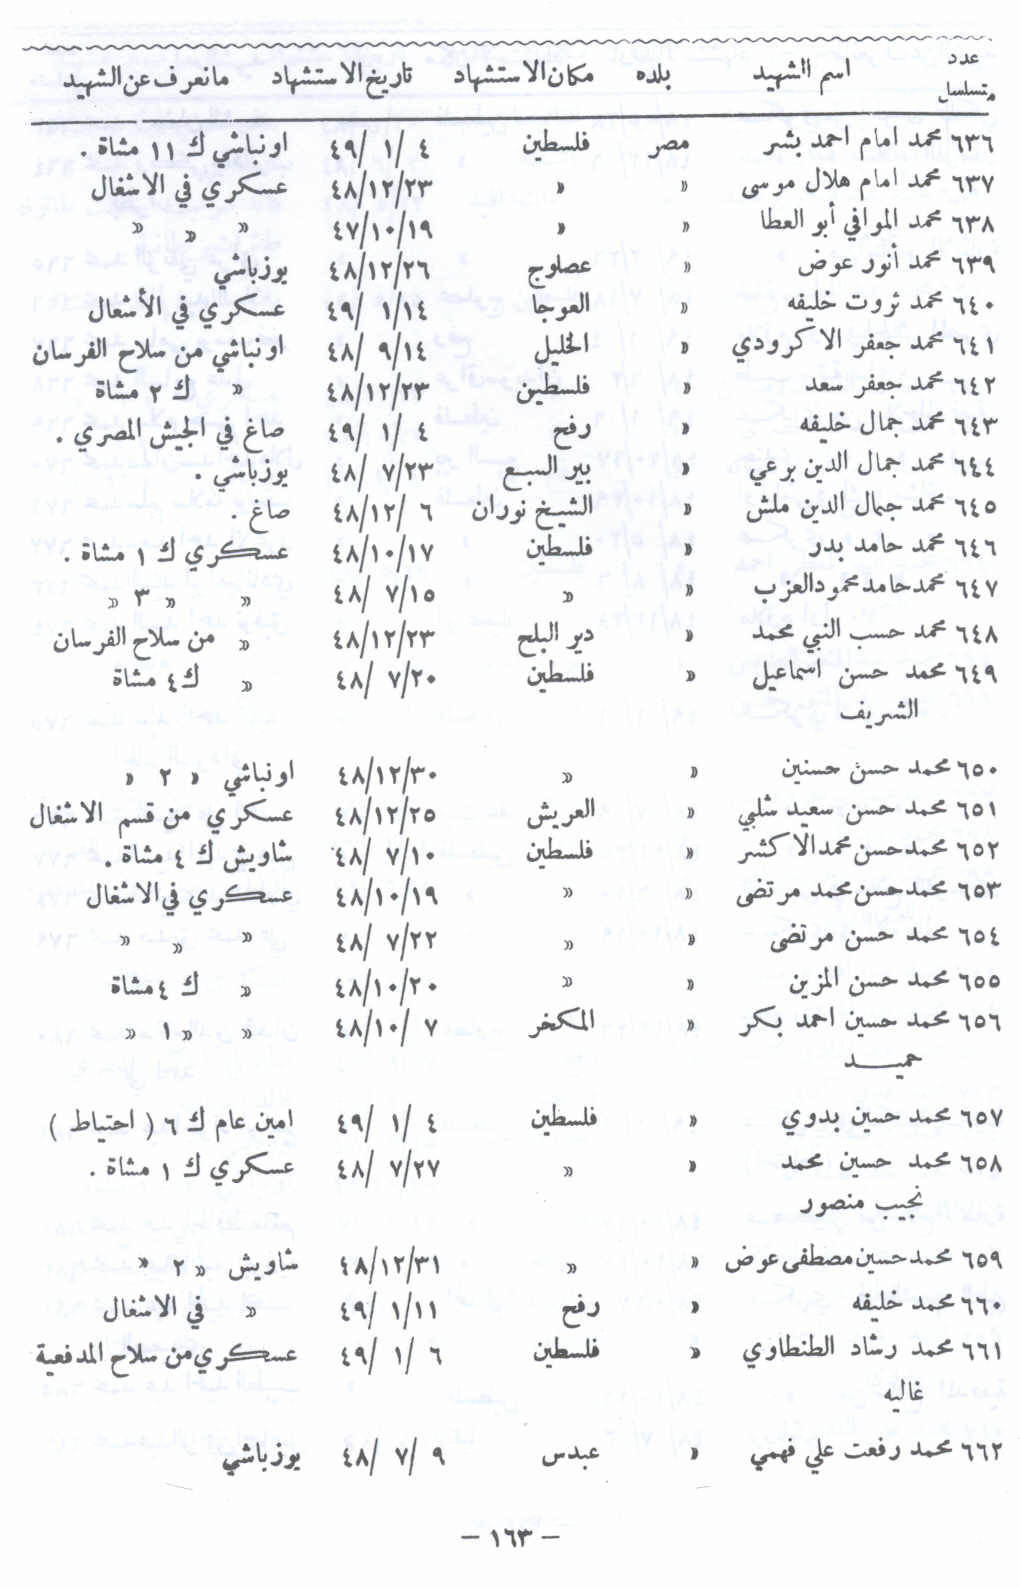 عدد متسلسل اسم الشهيد بلده مكان الاستشهاد تاريخ الاستشهاد ما نعرف عن الشهيد
٦٣٦ محمد امام احمد بشر مصر فلسطين ٤ /١ /٤٩ اونباشي ك ١١ مشاة .
٦٣٧ محمد امام هلال موسى « « ٤٨/١٢/٢٣ عسكري في الاشغال
٦٣٨ محمد الموافي أبو العطا « « ٤٧/١٠/١٩ « « «
٦٣٩ محمد أنور عوض « عصلوج ٤٨/١٢/٢٦ يوزباشي
٦٤٠ محمد ثروت خليفه « العوجا ٤٩/ ١/١٤ عسكري في الأسعال
٦٤١ محمد جعفر الاكرودي « الخليل ٤٨/ ٩/١٤ اونباشي من سلاح الفرسان
٦٤٢ محمد جعفر سعد « فلسطين ٤٨/١٢/٢٣ « ك ٢ مشاة
٦٤٣ محمد جمال خليفه « رفح ٤ /١ /٤٩ صاغ في الجيش المصري .
٦٤٤ محمد جمال الدين برعي « بير السبع ٤٨/ ٧/٢٣ يوزباشي .
٦٤٥ محمد جمال الدين ملش « الشيخ نوران ٤٨/١٢/ ٦ صاغ
٦٤٦ محمد حامد بدر « فلسطين ٤٨/١٠/١٧ عسكري ك ١ مشاة .
٦٤٧ محمد حامد محمود العزب « « ٤٨/ ٧/١٥ « « ٣ «
٦٤٨ محمد حسب النبي محمد « دير البلح ٤٨/١٢/٢٣ « من سلاح الفرسان
٦٤٩ محمد حسن اسماعيل « فلسطين ٤٨/ ٧/٢٠ « ك ٤ مشاة
الشريف
٦٥٠ محمد حسن حسنين « « ٤٨/١٢/٣٠ اونباشي « ٢ «
٦٥١ محمد حسن سعيد شلبي « العريش ٤٨/١٢/٢٥ عسكري من قسم الاشغال
٦٥٢ محمد حسن محمد الاكشر « فلسطين ٤٨/ ٧/١٠ شاويش ك ٤ مشاة .
٦٥٣ محمد حسن محمد مرتضى « « ٤٨/١٠/١٩ عسكري في الاشغال
٦٥٤ محمد حسن مرتضى « « ٤٨/ ٧/٢٢ « « «
٦٥٥ محمد حسن المزين « « ٤٨/١٠/٢٠ « ك ٤ مشاة
٦٥٦ محمد حسين احمد بكر « المكخر ٤٨/١٠/ ٧ « « ١ «
حميـــد
٦٥٧ محمد حسين بدوي « فلسطين ٤ /١ /٤٩ امين عام ك ٦ ( احتياط )
٦٥٨ محمد حسين محمد « « ٤٨/ ٧/٢٧ عسكري ك ١ مشاة .
نجيب منصور
٦٥٩ محمد حسين مصطفى عوض « « ٤٨/١٢/٣١ شاويش « ٢ «
٦٦٠ محمد خليفه « رفح ٤٩/ ١/١١ « في الاشغال
٦٦١ محمد رشاد الطنطاوي « فلسطين ٦ /١ /٤٩ عسكري من سلاح المدفعية
غاليه
٦٦٢ محمد رفعت علي فهمي « عبدس ٤٨/ ٧/ ٩ يوزباشي
– ١٦٣ –